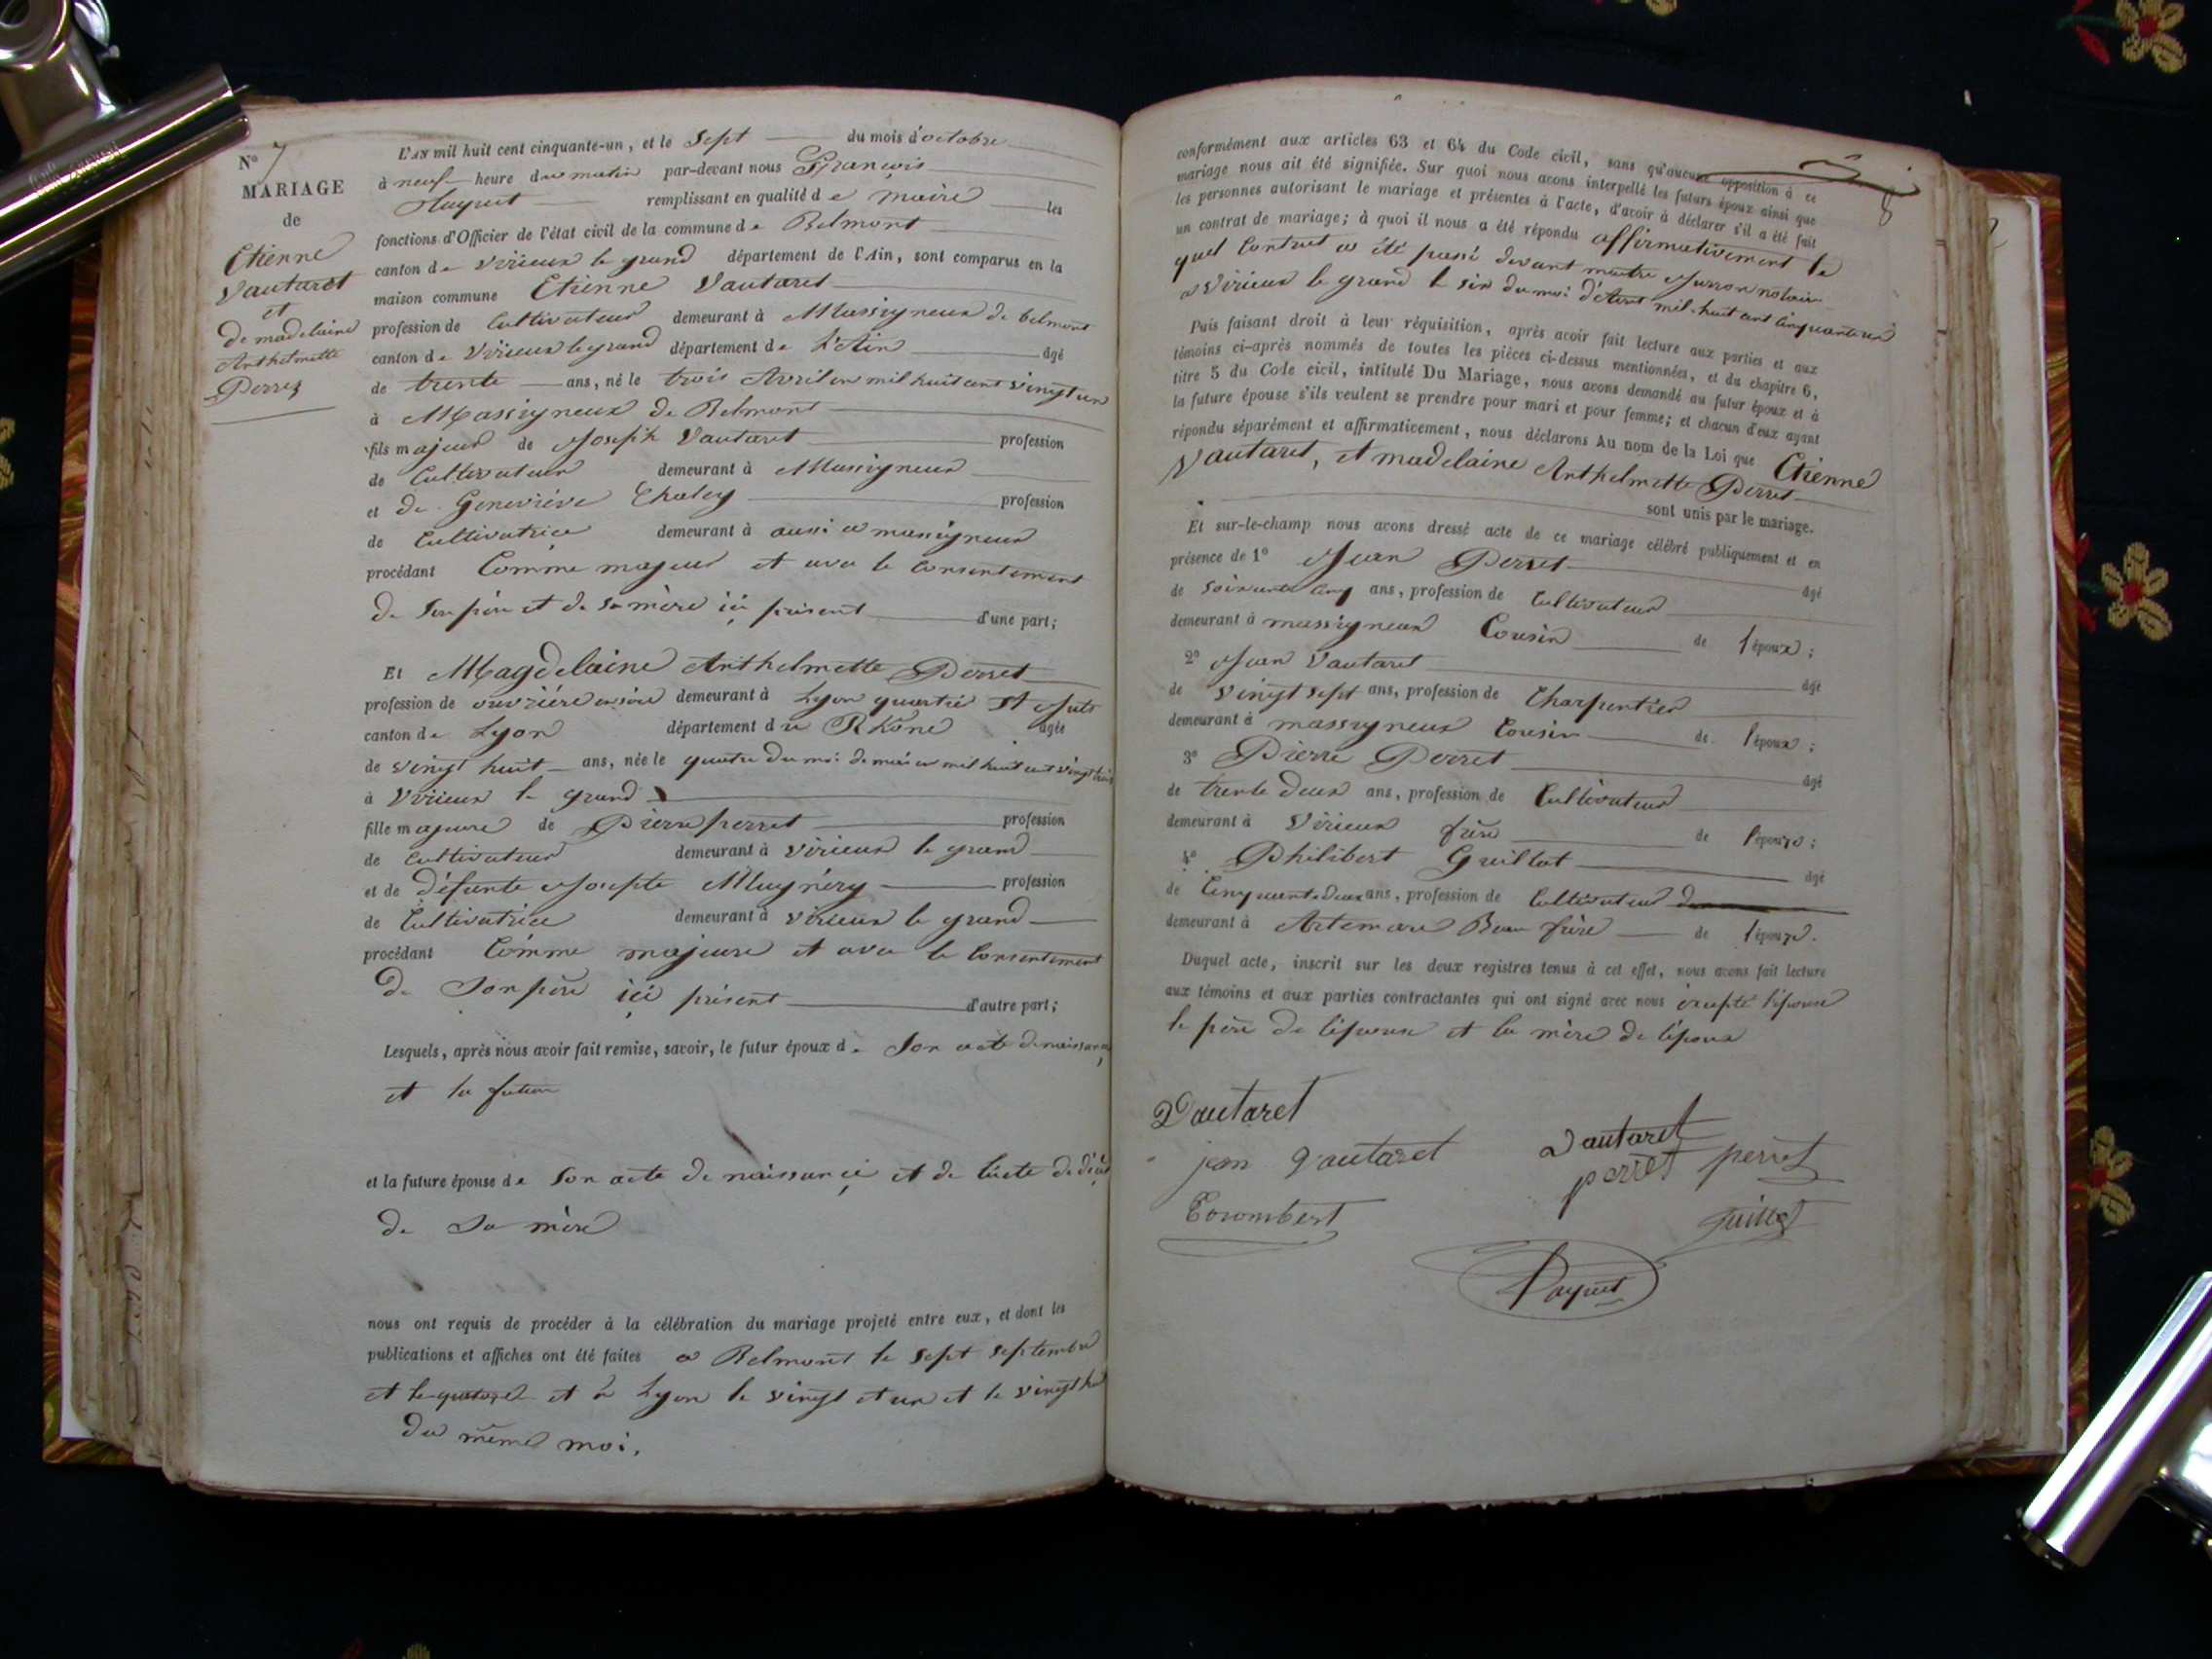 N° 7
MARIAGE
de
Etienne
Vautaret
et
de madelaine
Anthelmette
Perret
L'AN mil huit cent cinquante-un, et le Sept du mois d'octobre
à neuf heure du matin par-devant nous François
remplissant en qualité de maire les
fonctions d'Officier de l'état civil de la commune de Belmont
canton de virieux le grand département de l'Ain, sont comparus en la
maison commune Etienne Vautaret
profession de Cultivateur demeurant à Massigneux de belmont
canton de Virieux le grand département de L'Ain âgé
de trente ans, né le trois Avril en mil huit cent vingt un
à Massigneux de Belmont
fils majeur de Joseph Vautaret profession
de Cultivateur demeurant à Massigneux
et de Geneviéve Chaley profession
de Cultivatrice demeurant à aussi a massigneux
procédant Comme majeur et avec le Consentement
de Son pére et de sa mère içi présent d'une part;
Et Magdelaine Anthelmette Perret
profession de ouvriére en soie demeurant à Lyon quartié St Juts
canton de Lyon département du Rhône âgée
de vingt huit ans, née le quatre du moi de mai en mil huit cent vingt trois
à Virieux le grand
fille majeure de Pierre perret profession
de Cultivateur demeurant à virieux le grand
et de défunte Josepte Mugnéry profession
de Cultivatrice demeurant à virieux le grand
procédant Comme majeure et avec le Consentement
de Son père içi présent d'autre part;
Lesquels, après nous avoir fait remise, savoir, le futur époux de Son acte de naissance,
et la future
et la future épouse de Son acte de naissançe et de l'acte de déçès
de Sa mère
nous ont requis de procéder à la célébration du mariage projeté entre eux, et dont les
publications et affiches ont été faites a Belmont le sept septembre
et le quatorze et à Lyon le vingt et un et le vingt huit
du même moi.
conformément aux articles 63 et 64 du Code civil, sans qu'aucune opposition à ce
mariage nous ait été signifiée. Sur quoi nous avons interpellé les futurs époux ainsi que
les personnes autorisant le mariage et présentes à l'acte, d'avoir à déclarer s'il a été fait
un contrat de mariage; à quoi il nous a été répondu affirmativement le
quel Contrat a été passé devant maitre notaire
a Virieux le grand le six du moi d'Aout mil huit cent cinquante un
Puis faisant droit à leur réquisition, après avoir fait lecture aux parties et aux
témoins ci-après nommés de toutes les pièces ci-dessus mentionnées, et du chapitre 6,
titre 5 du Code civil, intitulé Du Mariage, nous avons demandé au futur époux et à
la future épouse s'ils veulent se prendre pour mari et pour femme; et chacun d'eux ayant
répondu séparément et affirmativement, nous déclarons Au nom de la Loi que Etienne
Vautaret, et madelaine Anthelmette Perret
sont unis par le mariage.
Et sur-le-champ nous avons dressé acte de ce mariage célébré publiquement et en
présence de 1° Jean Perret âgé
de soixante cinq ans, profession de Cultivateur
demeurant à massigneux Cousin de l'époux;
2° Jean Vautaret âgé
de vingt sept ans, profession de Charpentier
demeurant à massigneux Cousin de l'époux;
3° Pierre Perret âgé
de trente deux ans, profession de Cultivateur
demeurant à Virieux frère de l'épouze;
4° Philibert Guillot âgé
de Cinquante deux ans, profession de Cultivateur
demeurant à Artemare Beau frère de l'épouze.
Duquel acte, inscrit sur les deux registres tenus à cet effet, nous avons fait lecture
aux témoins et aux parties contractantes qui ont signé avec nous éxcepté l'épouse
le père de l'épouse et la mère de l'époux
Vautaret
Vautaret
jean Vautaret
perret perret
Corombert
guillot